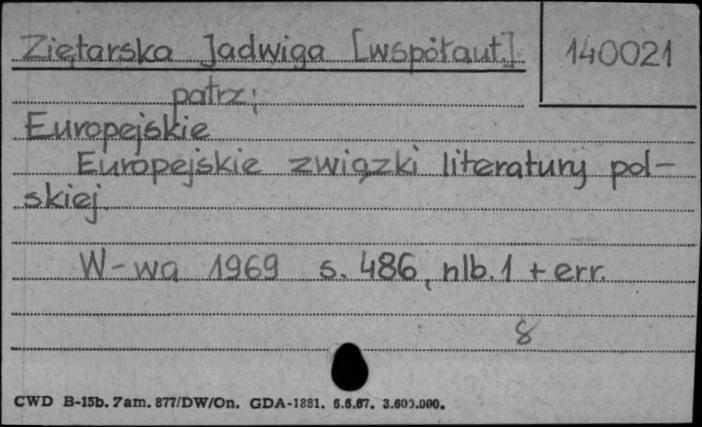 Ziętarska Jadwiga [współaut.] 140021
patrz:
Europejskie
Europejskie związki literatury pol-
skiej.
W-wa 1969 s. 486, nlb. 1 + err.
8
CWD B-15b. Zam. 877/DW/On. GDA-1881. 6.6.67. 3.600.000.